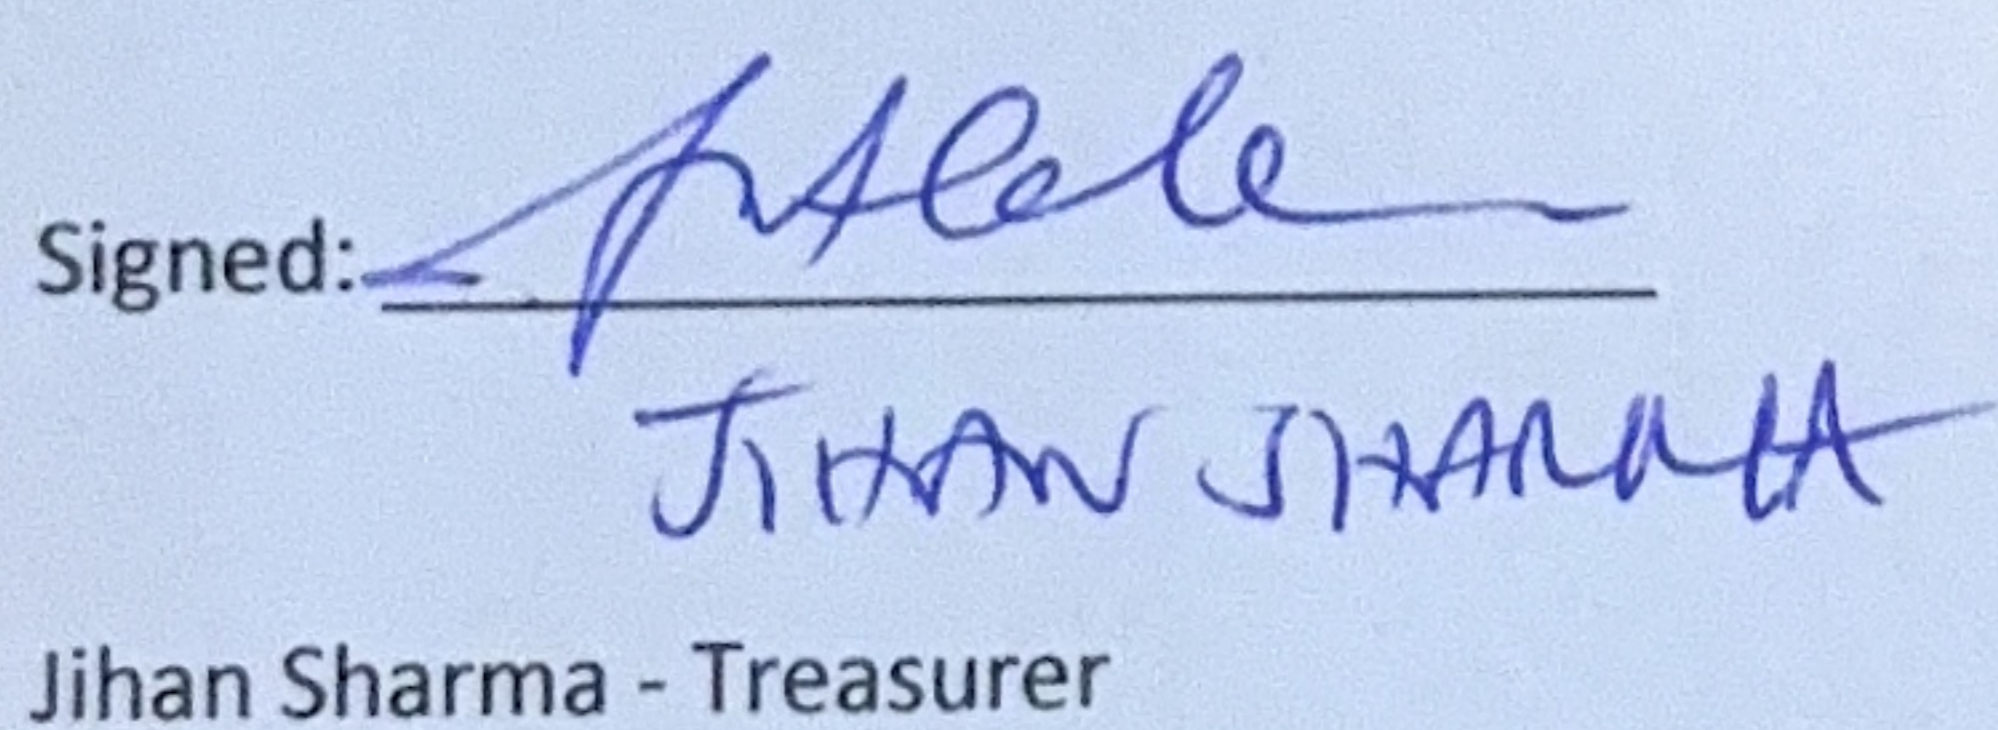 Signed:
JIHAN SHARMA
Jihan Sharma - Treasurer